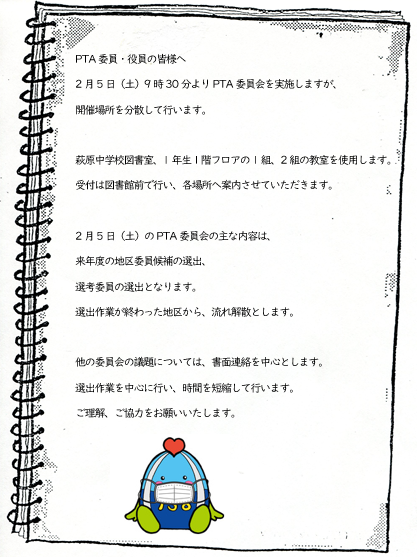 PTA 委員・役員の皆様へ
2月5日（土）9時30分より PTA 委員会を実施しますが、
開催場所を分散して行います。
萩原中学校図書室、1年生1階フロアの1組、2組の教室を使用します。
受付は図書館前で行い、各場所へ案内させていただきます。
2月5日（土）の PTA 委員会の主な内容は、
来年度の地区委員候補の選出、
選考委員の選出となります。
選出作業が終わった地区から、流れ解散とします。
他の委員会の議題については、書面連絡を中心とします。
選出作業を中心に行い、時間を短縮して行います。
ご理解、ご協力をお願いいたします。